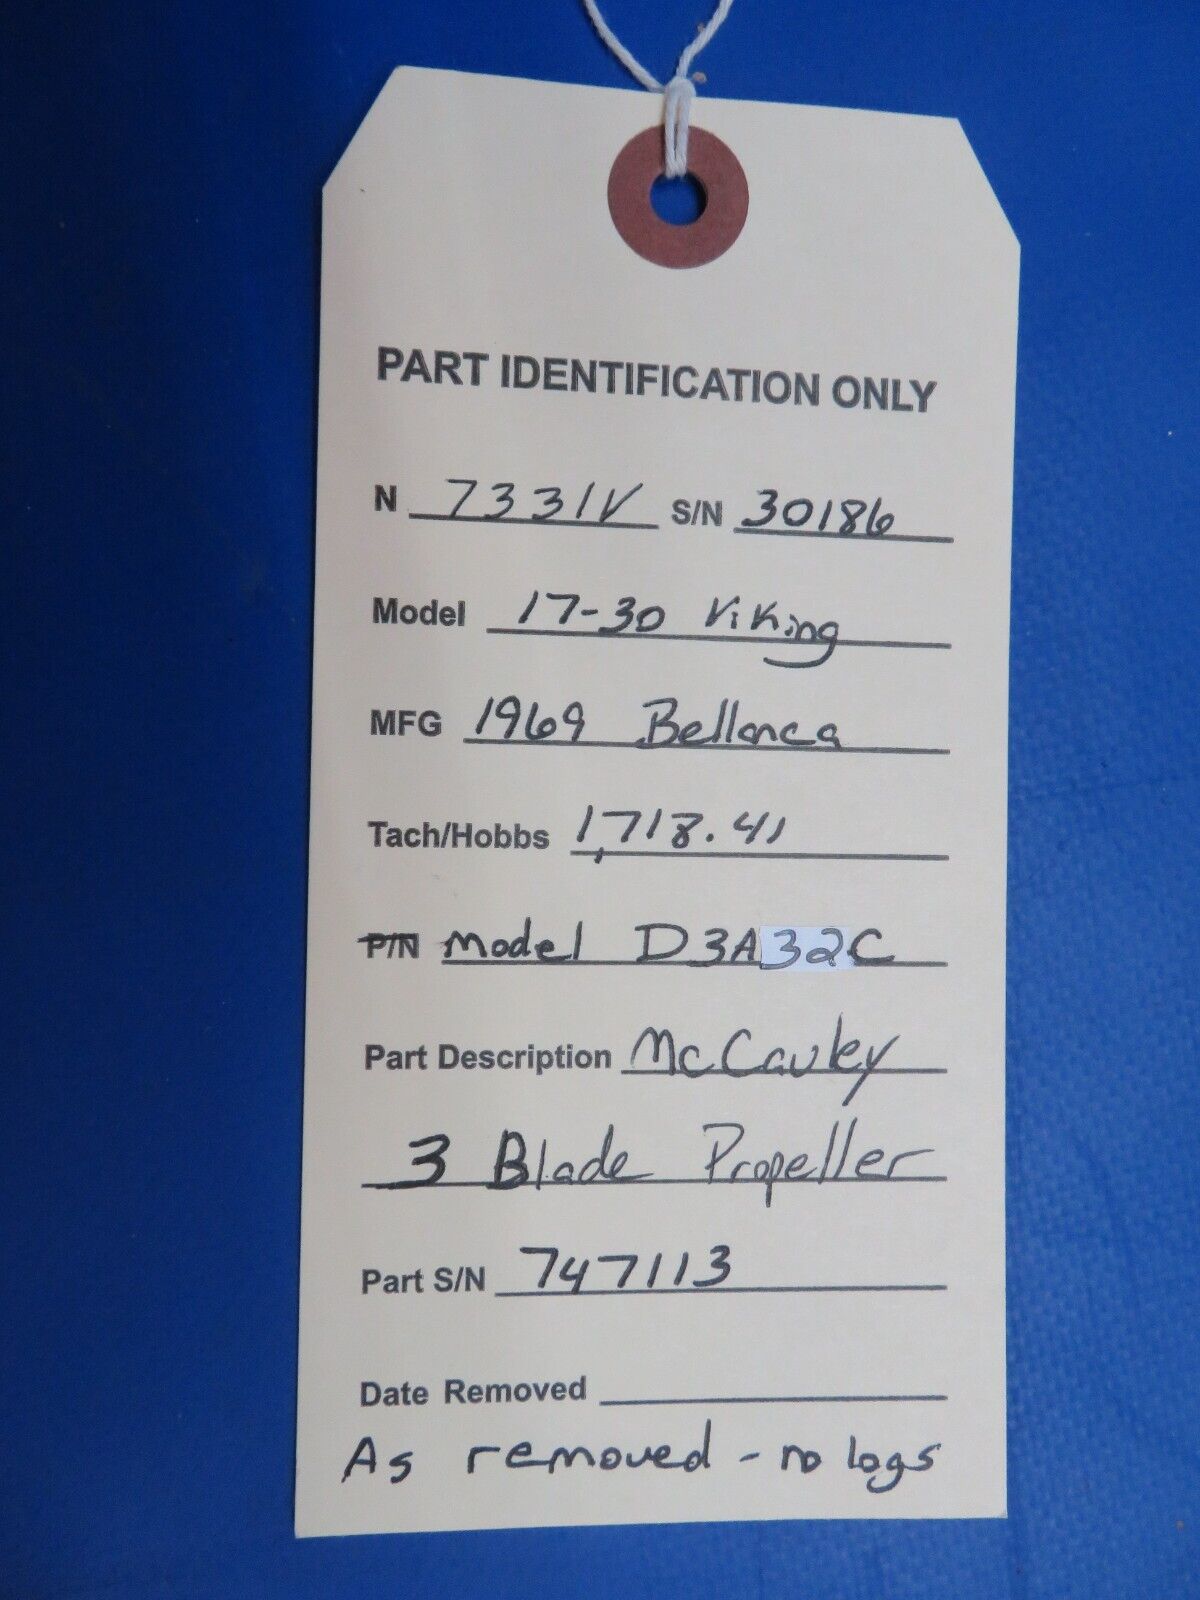 PART IDENTIFICATION ONLY
N 7331V S/N 30186
Model 17-30 Viking
MFG 1969 Bellanca
Tach/Hobbs 1,718.41
P/N Model D3A32C
Part Description McCauley
3 Blade Propeller
Part S/N 747113
Date Removed
As removed - no logs